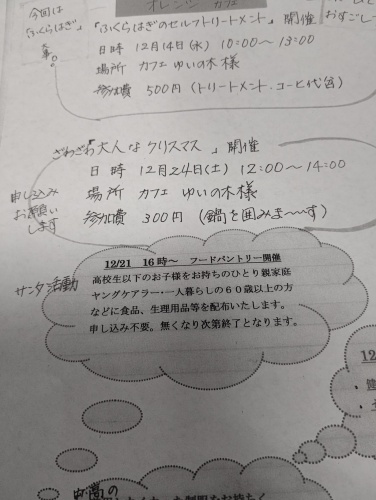 オレンジカフェ
今回は
「ふくらはぎ」
『ふくらはぎのセルフトリートメント』開催
日時 12月14日(水) 10:00〜13:00
場所 カフェ ゆいの木様
参加費 500円(トリートメント、コーヒー代含)
ざわざわ大人なクリスマス 』開催
日時 12月24日(土) 12:00〜14:00
場所 カフェ ゆいの木様
参加費 300円 (鍋を囲みま〜〜す)
申し込み
お願いします
サンタ活動
12/21 16時〜 フードパントリー開催
高校生以下のお子様をお持ちのひとり親家庭
ヤングケアラー・一人暮らしの60歳以上の方
などに食品、生理用品等を配布いたします。
申し込み不要。無くなり次第終了となります。